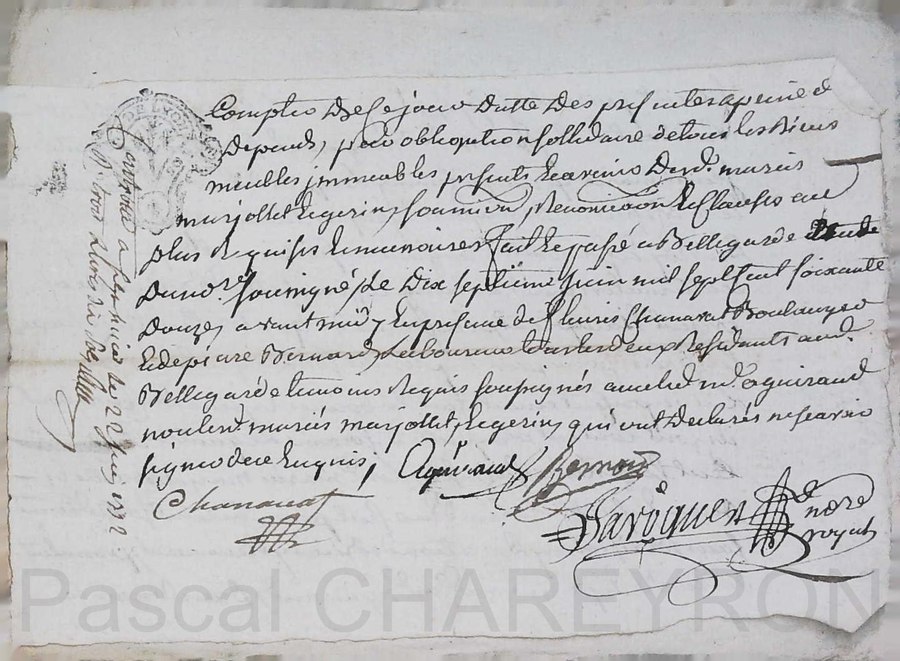 Compter de ce jour datte des presentes a peine de
depens, par obligation sollidaire de tous les biens
meubles immeubles presents et avenir desd. mariés
marjollet et gerin, soumission, renonciation et clauses au
plus requises et necessaires fait et passé a Bellegarde etude
du no.re soussigné, le dix septieme juin mil sept cent soixante
douze, avant midy en presence de fleuris Chanavat Boulanger
et de pierre Bernard laboureur tous les deux residants aud.
Bellegarde temoins requis soussignés avec led. m.e aguiraud
non lesd. mariés marjollet, et gerin, qui ont declarés ne scavoir
signer de ce enquis,
Aguiraud
Bernard
Chanavat
Baroquer
n.re
royal
Controllé a le 22 juin 1772
R. trois livres
DE LYON
Pascal CHAREYRON